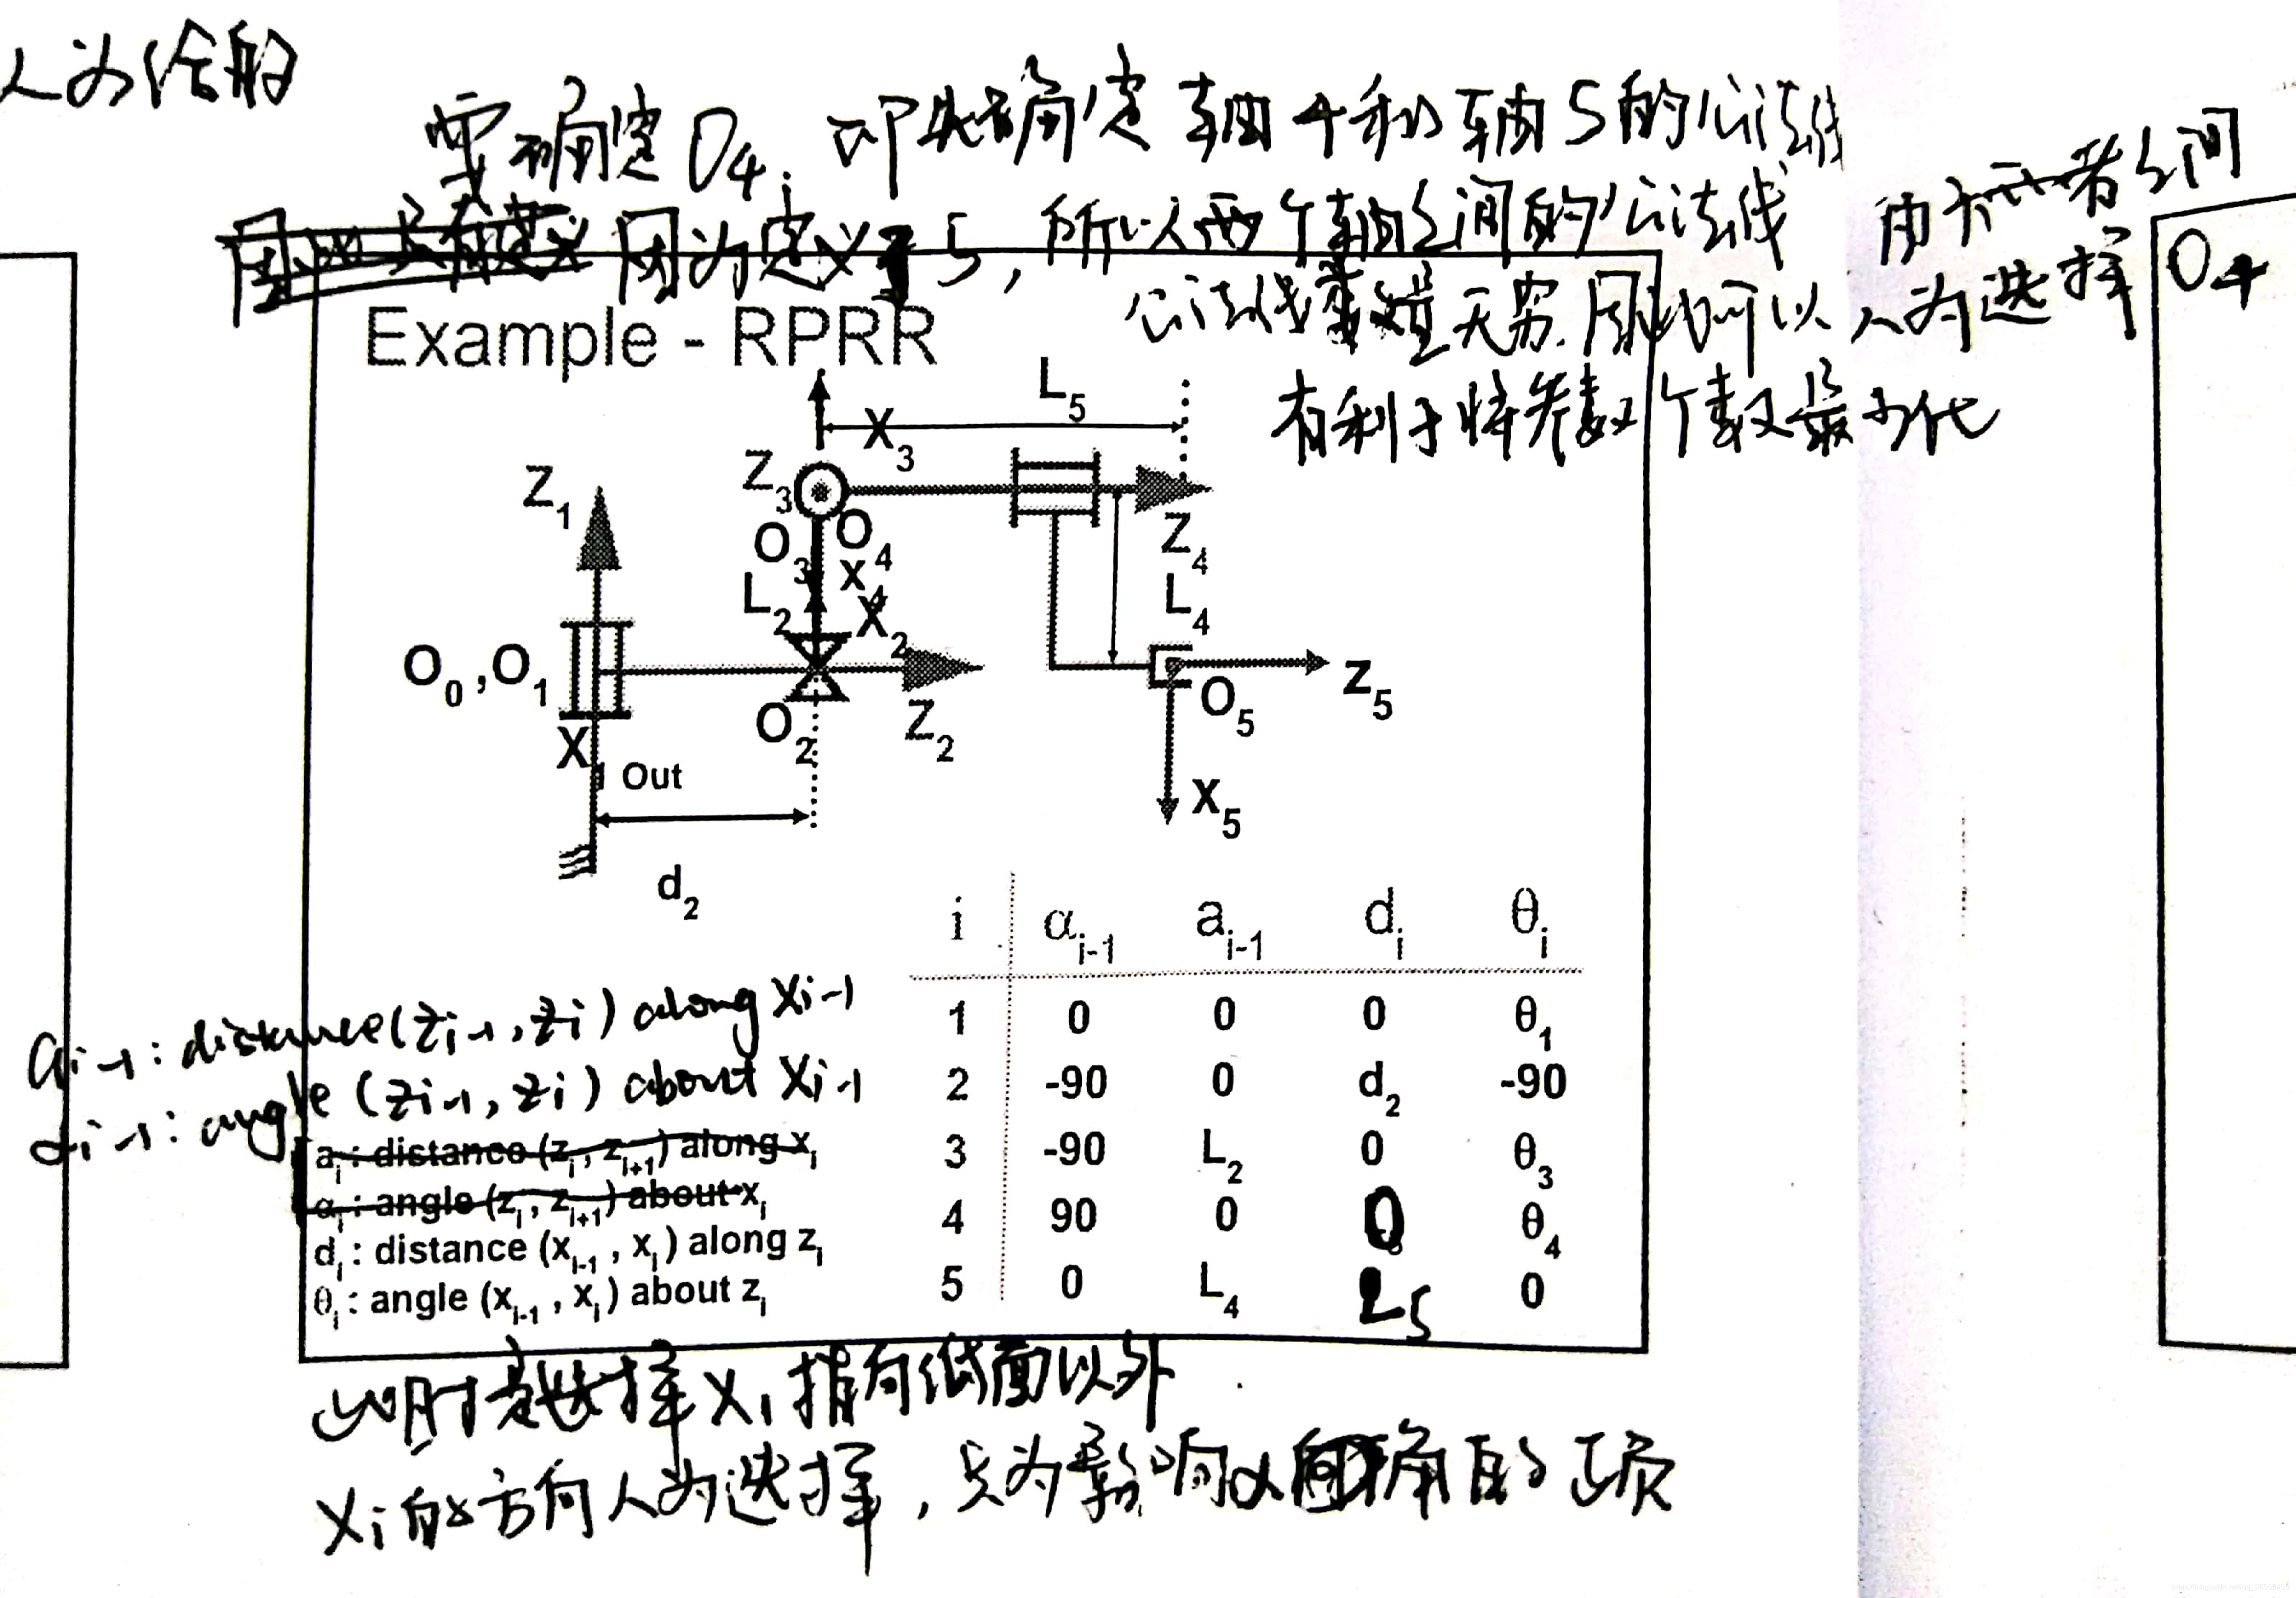 人为给的
要确定O4,即要确定轴4和轴5的公法线
因为定义了5,所以两个轴之间的公法线
由于二者之间
公法线有无穷.因此可以人为选择
O4
有利于将参数个数最少化
Example - RPRR
L5
X3
Z1
Z3
O3
O4
Z4
X4
L2
X2
L4
O0,O1
O2
Z2
O5
Z5
X1
Out
X5
d2
i αi-1 ai-1 di θi
1 0 0 0 θ1
2 -90 0 d2 -90
3 -90 L2 0 θ3
4 90 0 0 θ4
5 0 L4 L5 0
ai-1: distance(zi-1,zi) along xi-1
αi-1: angle(zi-1,zi) about xi-1
ai : distance (zi, zi+1) along xi
αi : angle (zi, zi+1) about xi
di : distance (xi-1 , xi) along zi
θi : angle (xi-1 , xi) about zi
此时选择X1指向纸面以外
Xi的方向人为选择,只为影响α角的正负